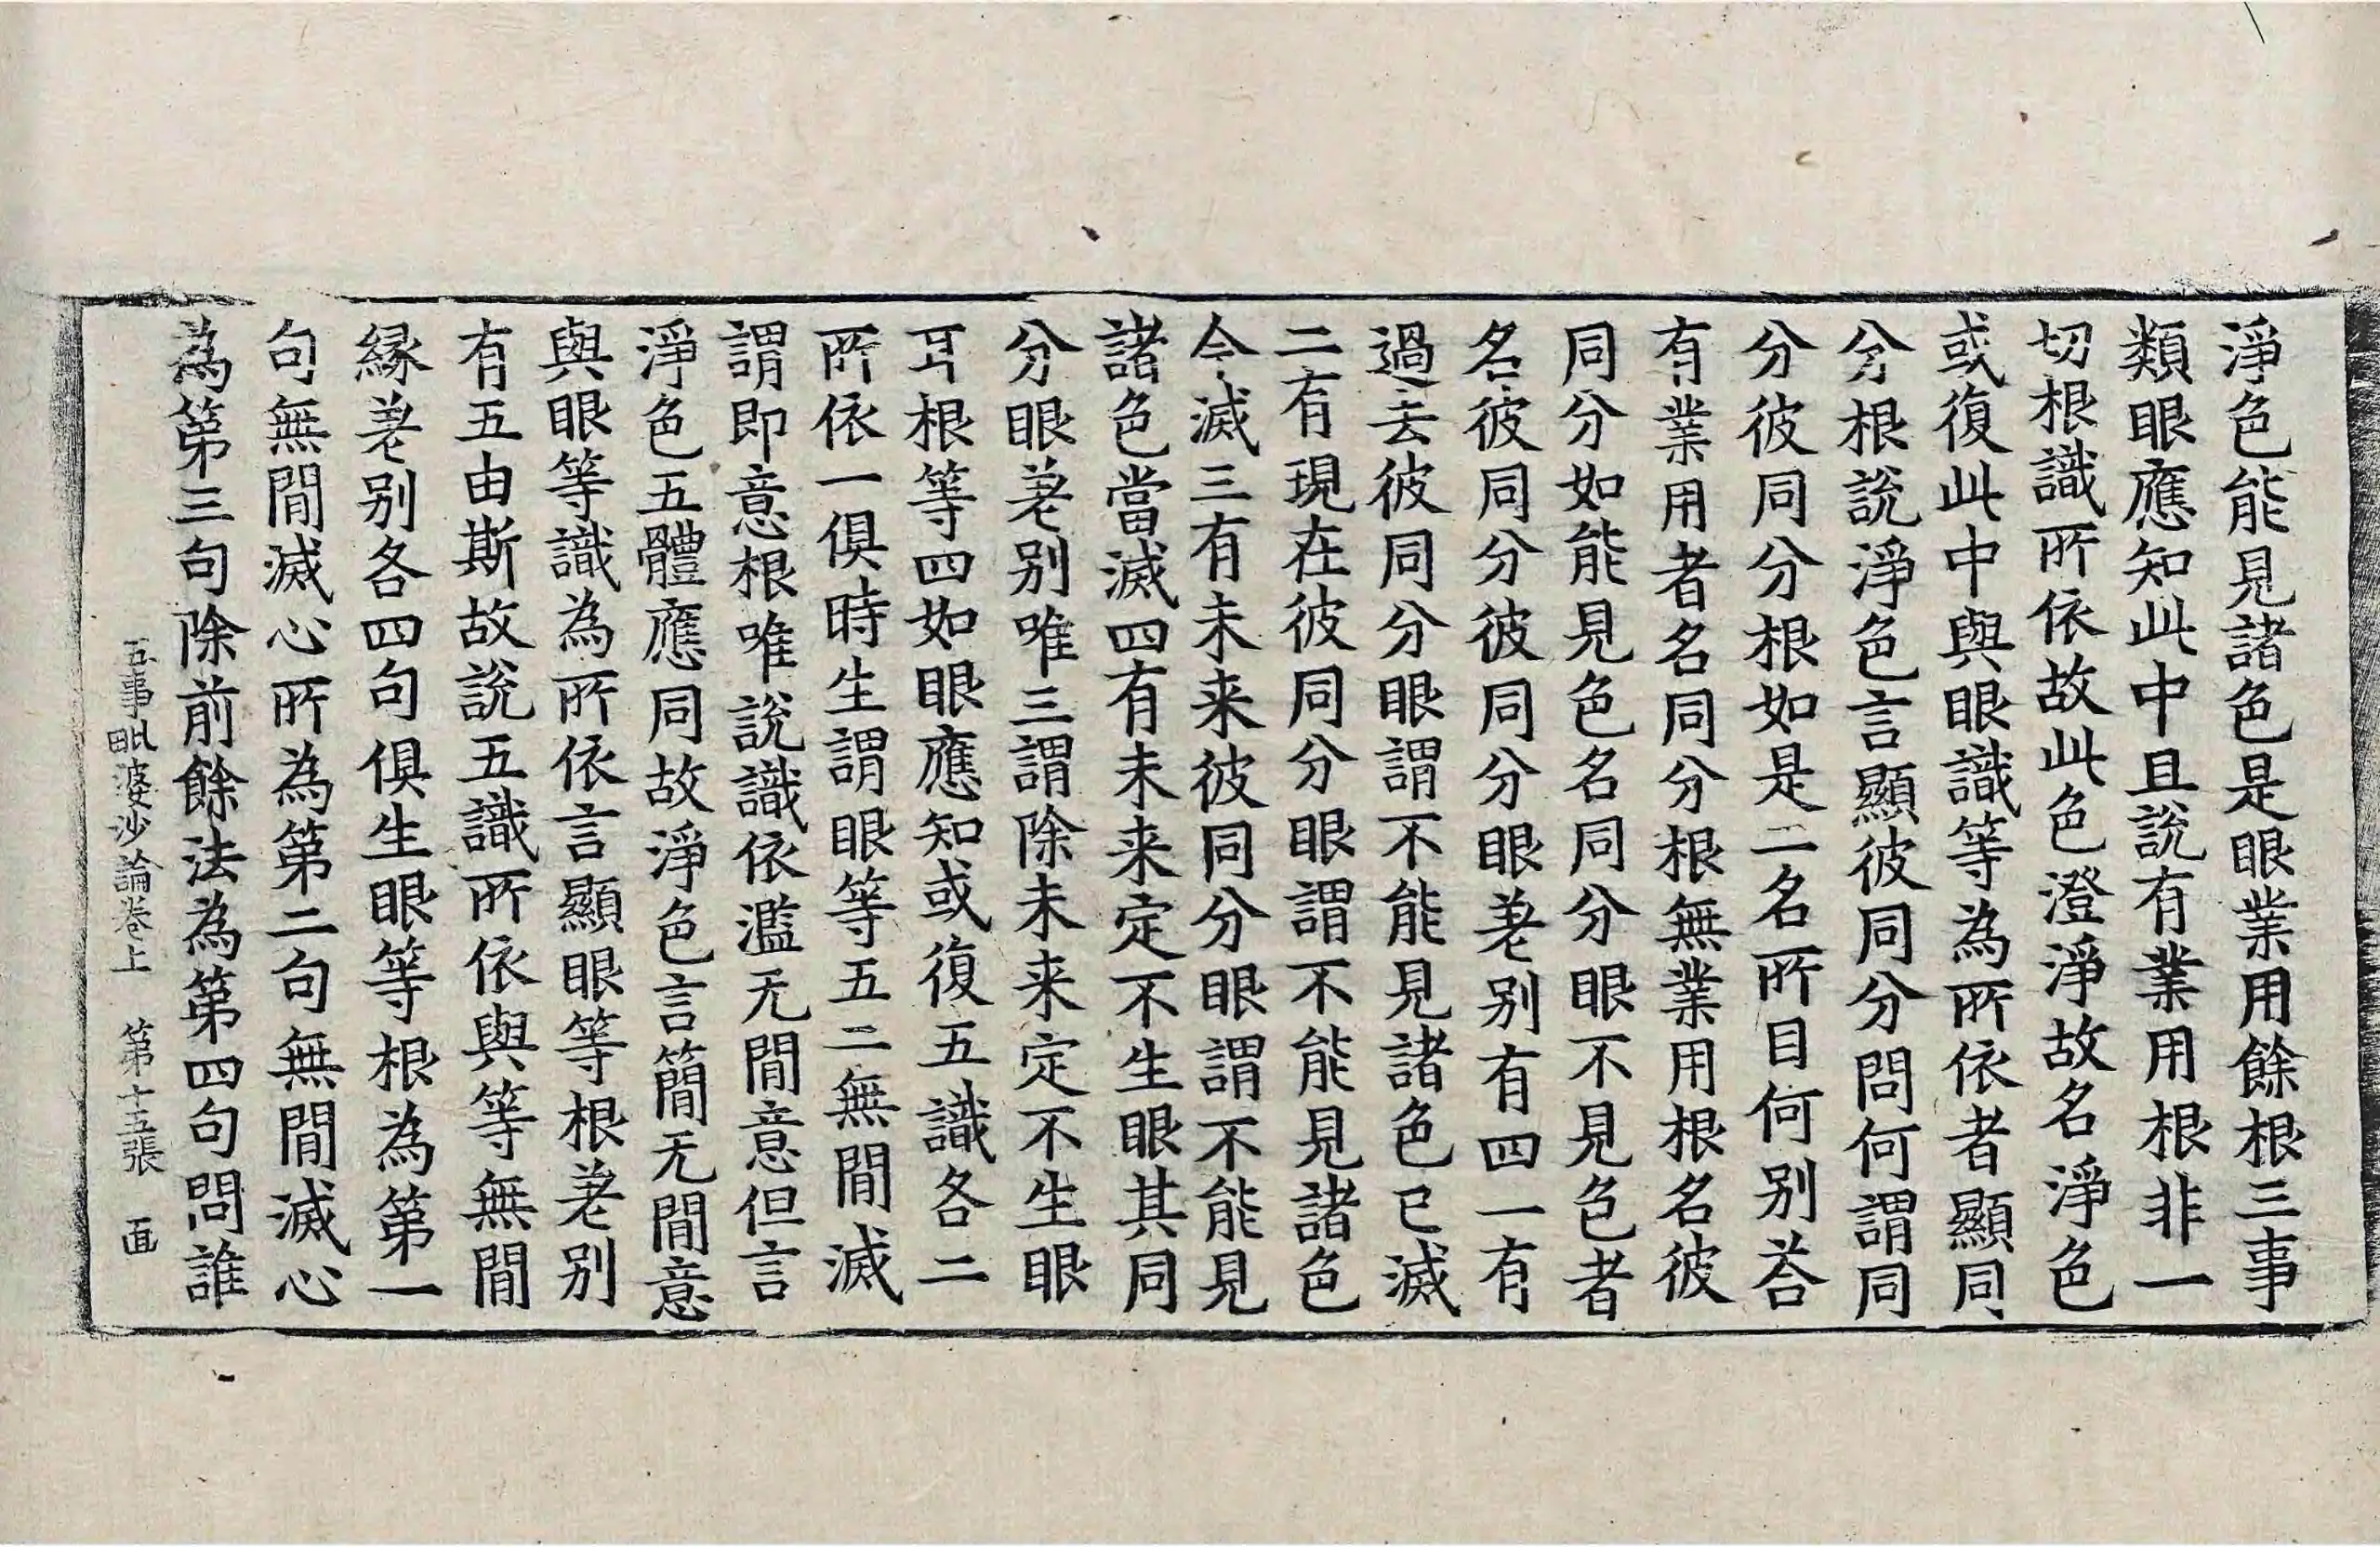 淨色能見諸色是眼業用餘根三事
類眼應知此中且說有業用根非一
切根識所依故此色澄淨故名淨色
或復此中與眼識等為所依者顯同
分根說淨色言顯彼同分問何謂同
分彼同分根如是二名所目何別荅
有業用者名同分根無業用根名彼
同分如能見色名同分眼不見色者
名彼同分彼同分眼差别有四一有
過去彼同分眼謂不能見諸色已滅
二有現在彼同分眼謂不能見諸色
今滅三有未来彼同分眼謂不能見
諸色當滅四有未来定不生眼其同
分眼差别唯三謂除未来定不生眼
耳根等四如眼應知或復五識各二
所依一俱時生謂眼等五二無間滅
謂即意根唯說識依濫无間意但言
淨色五體應同故淨色言簡无間意
與眼等識為所依言顯眼等根差别
有五由斯故說五識所依與等無間
緣差别各四句俱生眼等根為第一
句無間滅心所為第二句無間滅心
為第三句除前餘法為第四句問誰
五事毗婆沙論卷上 第十五張 畫